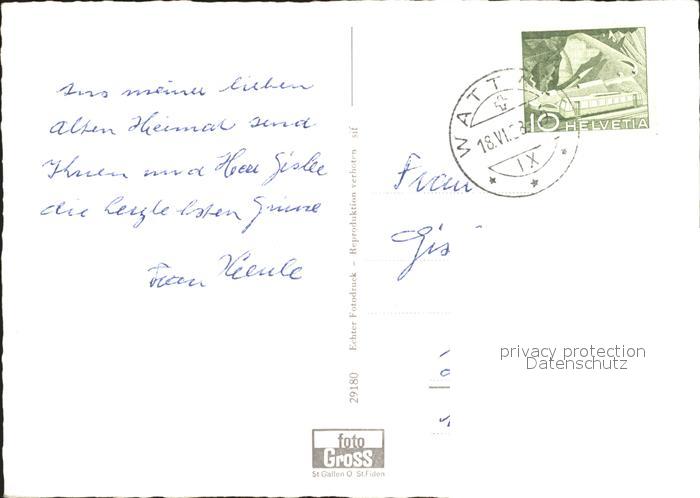 Aus meiner lieben
alten Heimat send
Ihnen und Herr Gisle
die herzlichsten Grüsse
Frau
WATT
18.VI.
IX
10 HELVETIA
Frau
Gis
privacy protection
Datenschutz
29180 Echter Fotodruck – Reproduktion verboten sif
foto
Gross
St Gallen O St.Fiden